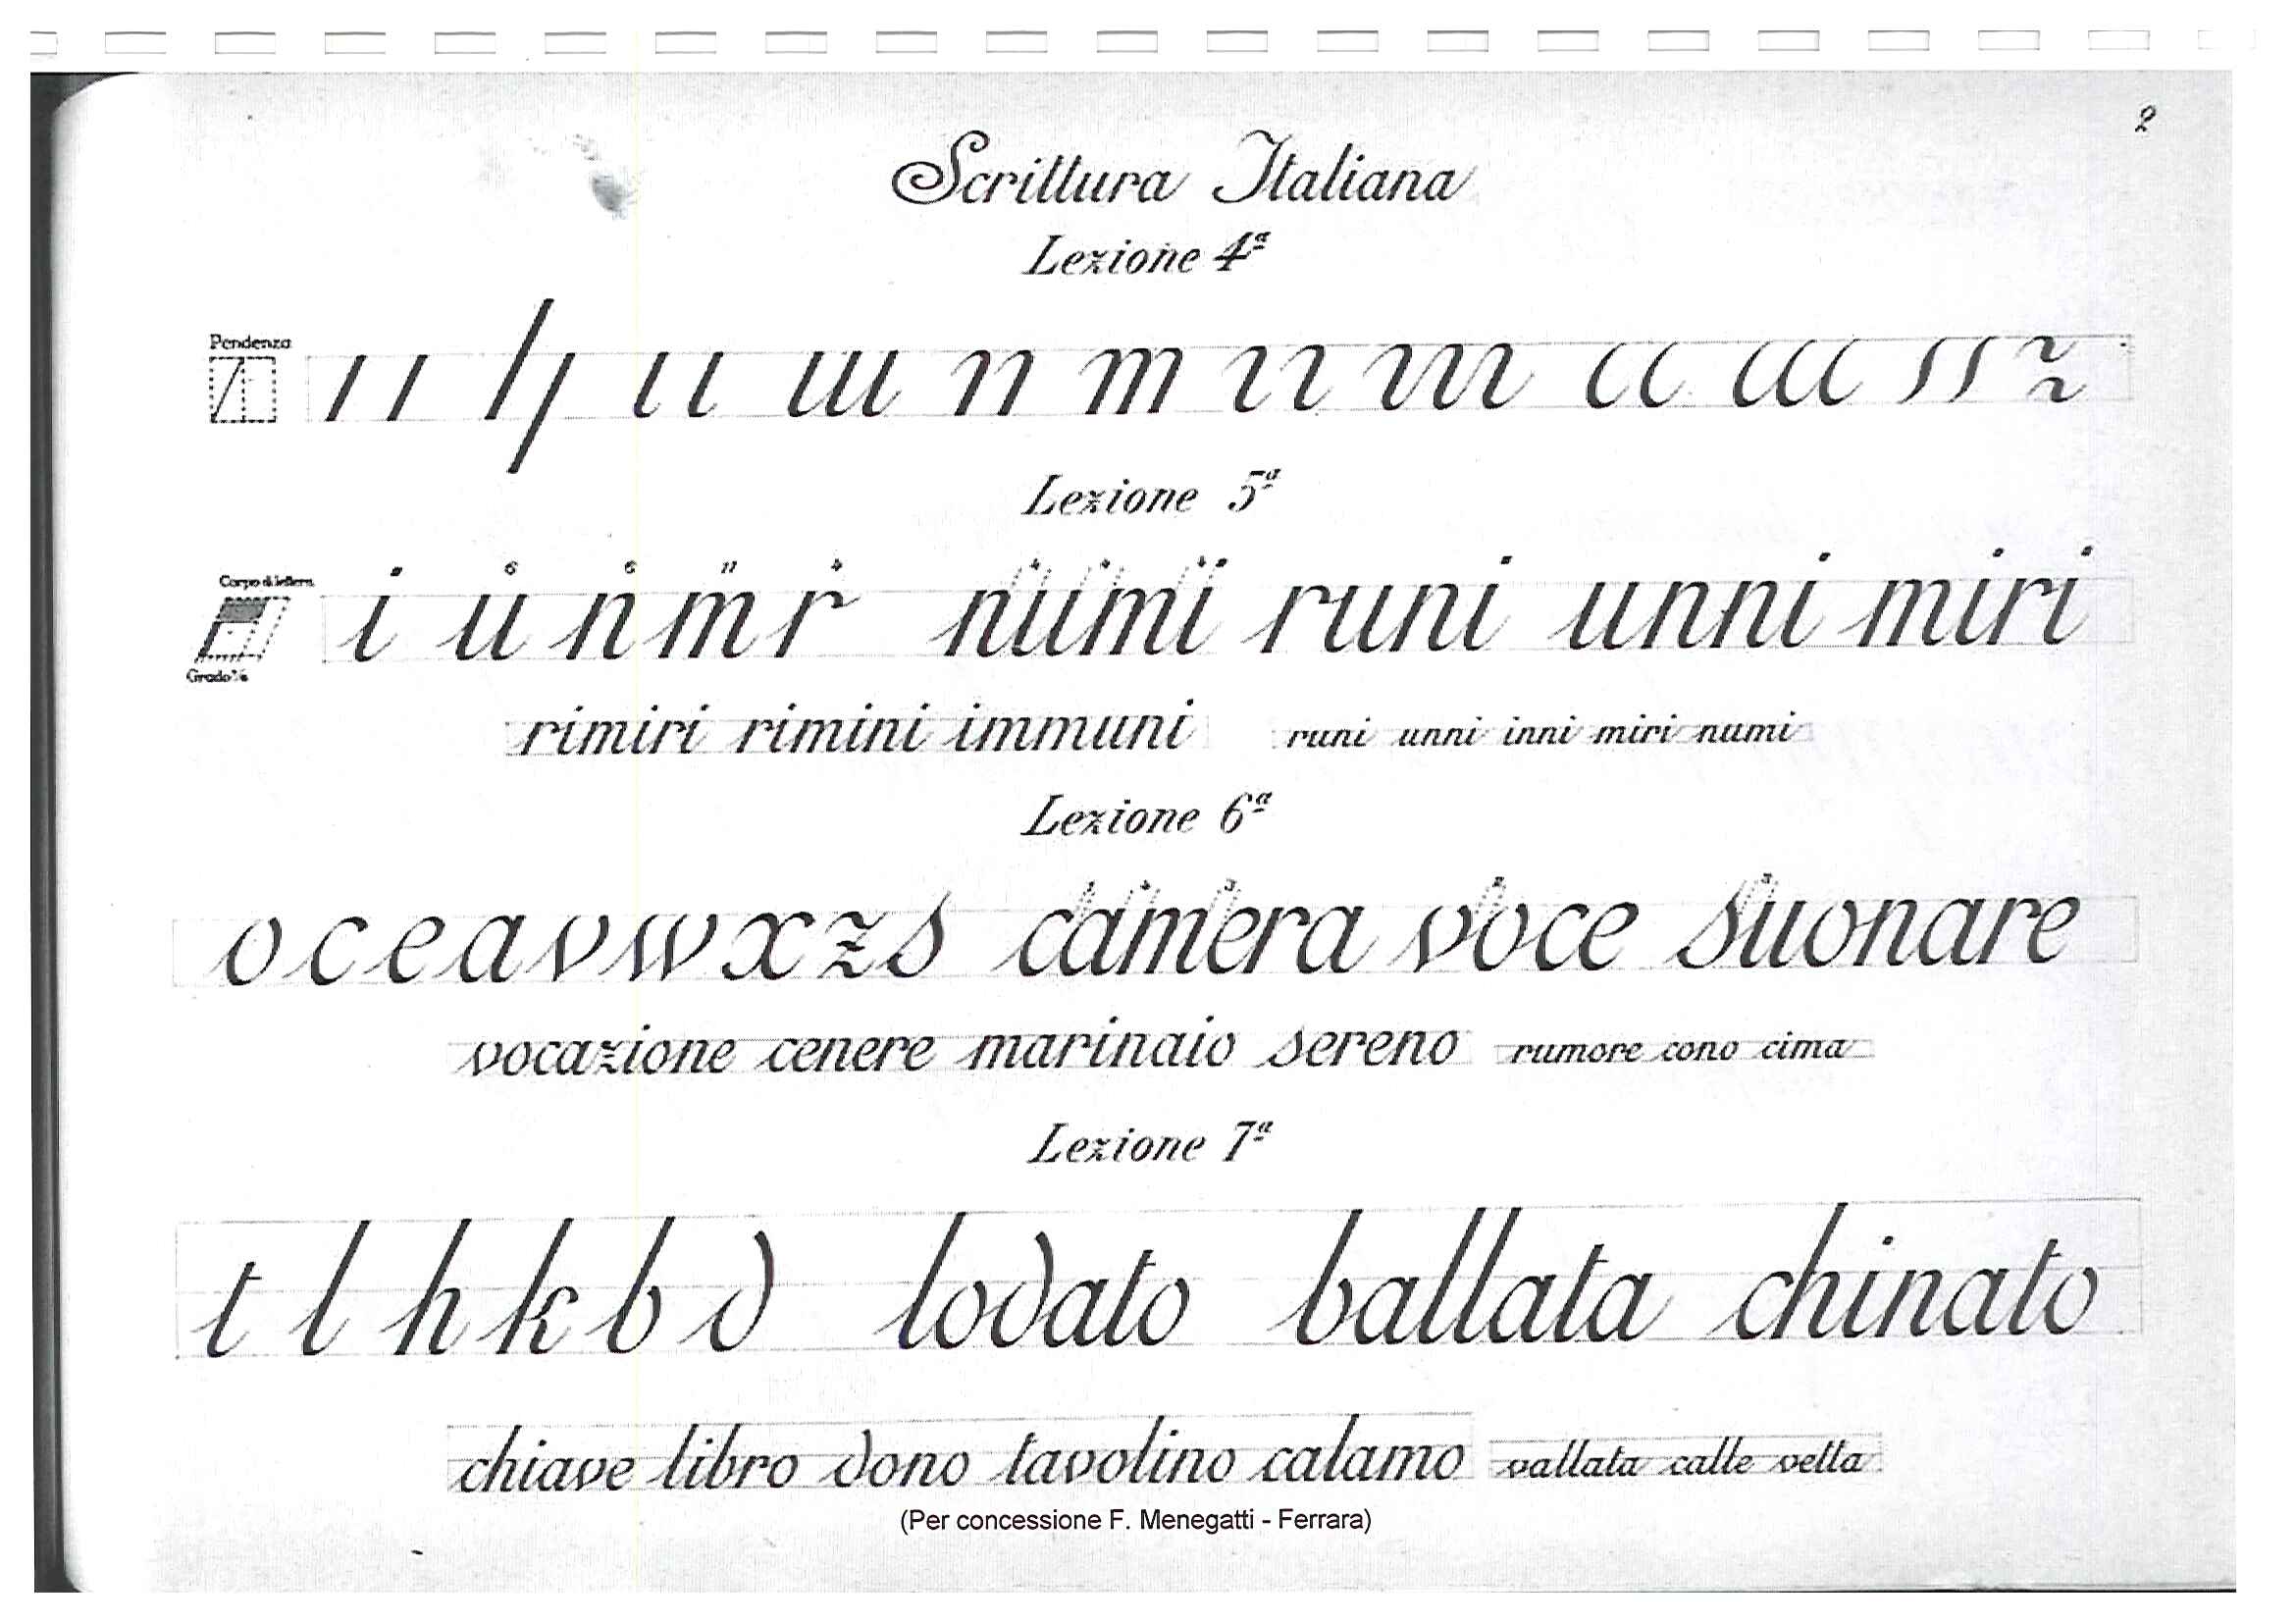 2
Scrittura Italiana
Lezione 4ª
Pendenza
Lezione 5ª
Corpo di lettera
i u n m r numi runi unni miri
Grado
rimiri rimini immuni runi unni inni miri numi
Lezione 6ª
o c e a v w x z s camera voce suonare
vocazione cenere marinaio sereno rumore cono cima
Lezione 7ª
t l h k b d lodato ballata chinato
chiave libro dono tavolino calamo vallata calle vella
(Per concessione F. Menegatti - Ferrara)